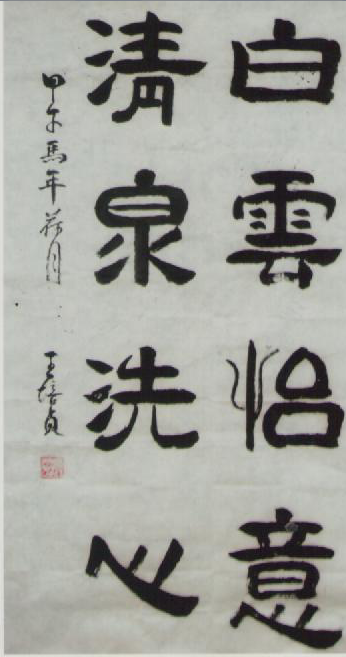 白雲怡意
清泉洗心
甲午馬年荷月
王培貞